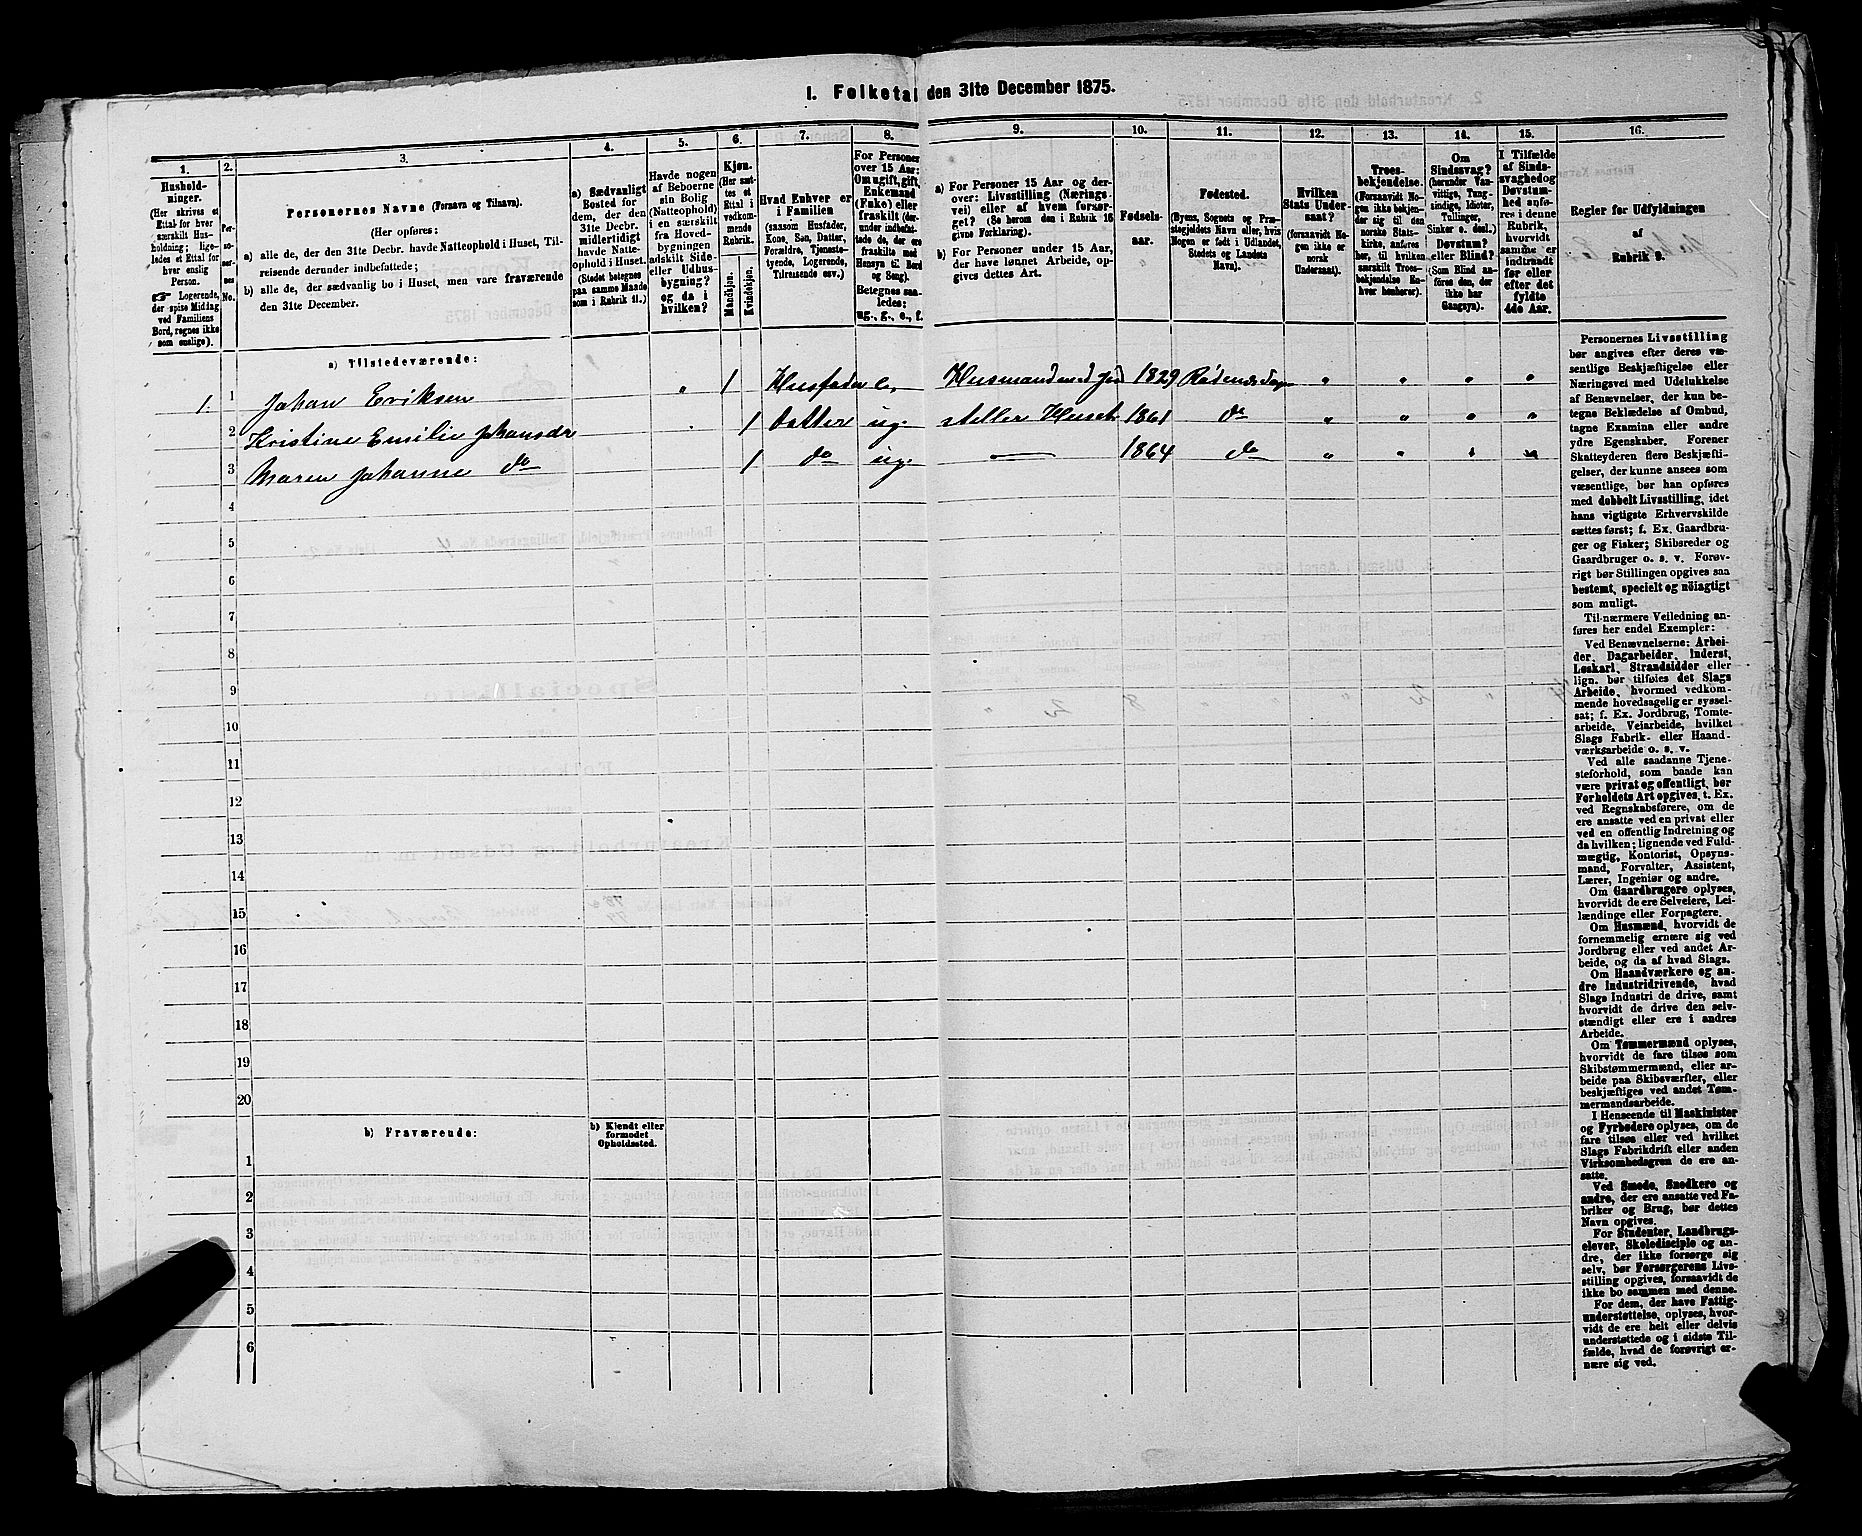 I. Folketal den 31te December 1875.
1. 2. 3. 4. 5. 6. 7. 8. 9. 10. 11. 12. 13. 14. 15. 16.
Hushold-
ninger.
(Her skrives et
Ettal for hver
særskilt Hus-
holdning; lige-
ledes et Ettal for
hver enslig
Person.
☞ Logerende,
der spise Middag
ved Familiens
Bord, regnes ikke
som enslige).
Per-
so-
ner-
nes
No.
Personernes Navne (Fornavn og Tilnavn).
(Her opføres:
a) alle de, der den 31te Decbr. havde Natteophold i Huset, Til-
reisende derunder indbefattede;
b) alle de, der sædvanlig bo i Huset, men vare fraværende
den 31te December.
a) Sædvanligt
Bosted for
dem, der den
31te Decbr.
midlertidigt
havde Natte-
ophold i Huset.
(Stedet betegnes
paa samme Maade
som i Rubrik 11.)
Havde nogen
af Beboerne
sin Bolig
(Natteophold)
i en særskilt
fra Hoved-
bygningen
adskilt Side-
eller Udhus-
bygning?
og da i
hvilken?
Kjøn.
(Her sæt-
tes et
Ettal i
vedkom-
mende
Rubrik.
Mandkjøn.
Kvindekjøn.
Hvad Enhver er
i Familien
(saasom Husfader,
Kone, Søn, Datter,
Forældre, Tjeneste-
tyende, Logerende,
Tilreisende osv.)
For Personer
over 15 Aar:
Om ugift, gift,
Enkemand
(Enke) eller
fraskilt (der-
under indbefat-
tede de, der ere
fraskilte med
Hensyn til Bord
og Seng).
Betegnes saa-
ledes:
ug., g., e., f.
a) For Personer 15 Aar og der-
over: Livsstilling (Nærings-
vei) eller af hvem forsør-
get? (Se herom den i Rubrik 16
givne Forklaring).
b) For Personer under 15 Aar,
der have lønnet Arbeide, op-
gives dettes Art.
Fødsels-
aar.
Fødested.
(Byens, Sognets og Præ-
stegjeldets Navn eller, hvis
Nogen er født i Udlandet,
Stedets og Landets
Navn).
Hvilken
Stats Under-
saat?
(forsaavidt No-
gen ikke er
norsk
Undersaat).
Troes-
bekjendelse.
(Forsaavidt No-
gen ikke bekjen-
der sig til den
norske Stats-
kirke, anføres
her, til hvilken
særskilt Troes-
bekjendelse En-
hver henhører).
Om
Sindssvag?
(herunder Van-
vittige, Tung-
sindige, Idioter,
Tullinger,
Sinker o. desl.)
Døvstum?
eller Blind?
(Som Blind an-
føres den, der
ikke har
Gangsyn).
I Tilfælde
af Sinds-
svaghed og
Døvstum-
hed anfø-
res i denne
Rubrik,
hvorvidt
samme er
indtraadt
før eller
efter det
fyldte
4de Aar.
Regler for Udfyldningen
af
Rubrik 9.
a) Tilstedeværende:
1. 1 Johan Eriksen " 1 Husfader e. Husmand med Jord 1829 Rødenes Sogn " " " "
2 Kristine Emilie Johansdr 1 Datter ug. steller Huset 1861 do " " " "
3 Maren Johanne do 1 do ug. — 1864 do " " " "
4
5
6
7
8
9
10
11
12
13
14
15
16
17
18
19
20
b) Fraværende:
b) Kjendt eller
formodet
Opholdssted.
1
2
3
4
5
6
Personernes Livsstilling
bør angives efter deres væ-
sentlige Beskjæftigelse eller
Næringsvei med Udelukkelse
af Benævnelser, der kun be-
tegne Beklædelse af Ombud,
tagne Examina eller andre
ydre Egenskaber. Forener
Skatteyderen flere Beskjæfti-
gelser, der kunne ansees som
væsentlige, bør han opføres
med dobbelt Livsstilling, idet
hans vigtigste Erhvervskilde
sættes først; f. Ex. Gaardbru-
ger og Fisker; Skibsreder og
Gaardbruger o. s. v. Forøv-
rigt bør Stillingen opgives saa
bestemt, specielt og nöiagtigt
som muligt.
Til nærmere Veiledning an-
føres her endel Exempler:
Ved Benævnelserne: Arbei-
der, Dagarbeider, Inderst,
Løskarl, Strandsidder eller
lign. bør tilføies det Slags
Arbeide, hvormed vedkom-
mende hovedsagelig er syssel-
sat; f. Ex. Jordbrug, Tomte-
arbeide, Veiarbeide, hvilket
Slags Fabrik- eller Haand-
værksarbeide o. s. v.
Ved alle saadanne Tjene-
steforhold, som baade kan
være privat og offentligt, bør
Forholdets Art opgives, t. Ex.
ved Regnskabsførere, om de
ere ansatte ved en privat eller
ved en offentlig Indretning og
da hvilken; lignende ved Fuld-
mægtig, Kontorist, Opsyns-
mand, Forvalter, Assistent,
Lærer, Ingeniør og andre.
Om Gaardbrugere oplyses,
hvorvidt de ere Selveiere, Lei-
lændinge eller Forpagtere.
Om Husmænd, hvorvidt de
fornemmelig ernære sig ved
Jordbrug eller ved andet Ar-
beide, og da af hvad Slags.
Om Haandværkere og an-
dre Industridrivende, hvad
Slags Industri de drive, samt
hvorvidt de drive den selv-
stændigt eller ere i andres
Arbeide.
Om Tømmermænd oplyses,
hvorvidt de fare tilsøs som
Skibstømmermænd, eller ar-
beide paa Skibsværfter, eller
beskjæftiges ved andet Tøm-
mermandsarbeide.
I Henseende til Maskinister
og Fyrbødere oplyses, om de
fare tilsøs eller ved hvilket
Slags Fabrikdrift eller anden
Virksomhedsgren de ere an-
satte.
Ved Smede, Snedkere og
andre, der ere ansatte ved Fa-
briker og Brug, bør dettes
Navn opgives.
For Studenter, Landbrugs-
elever, Skoledisciple og an-
dre, der ikke forsørge sig
selv, bør Forsørgerens Livs-
stilling opgives, forsaavidt de
ikke bo sammen med denne.
For dem, der have Fattig-
understøttelse, oplyses, hvor-
vidt de ere helt eller delvis
understøttede og i sidste Til-
fælde, hvad de forøvrigt er-
nære sig ved.